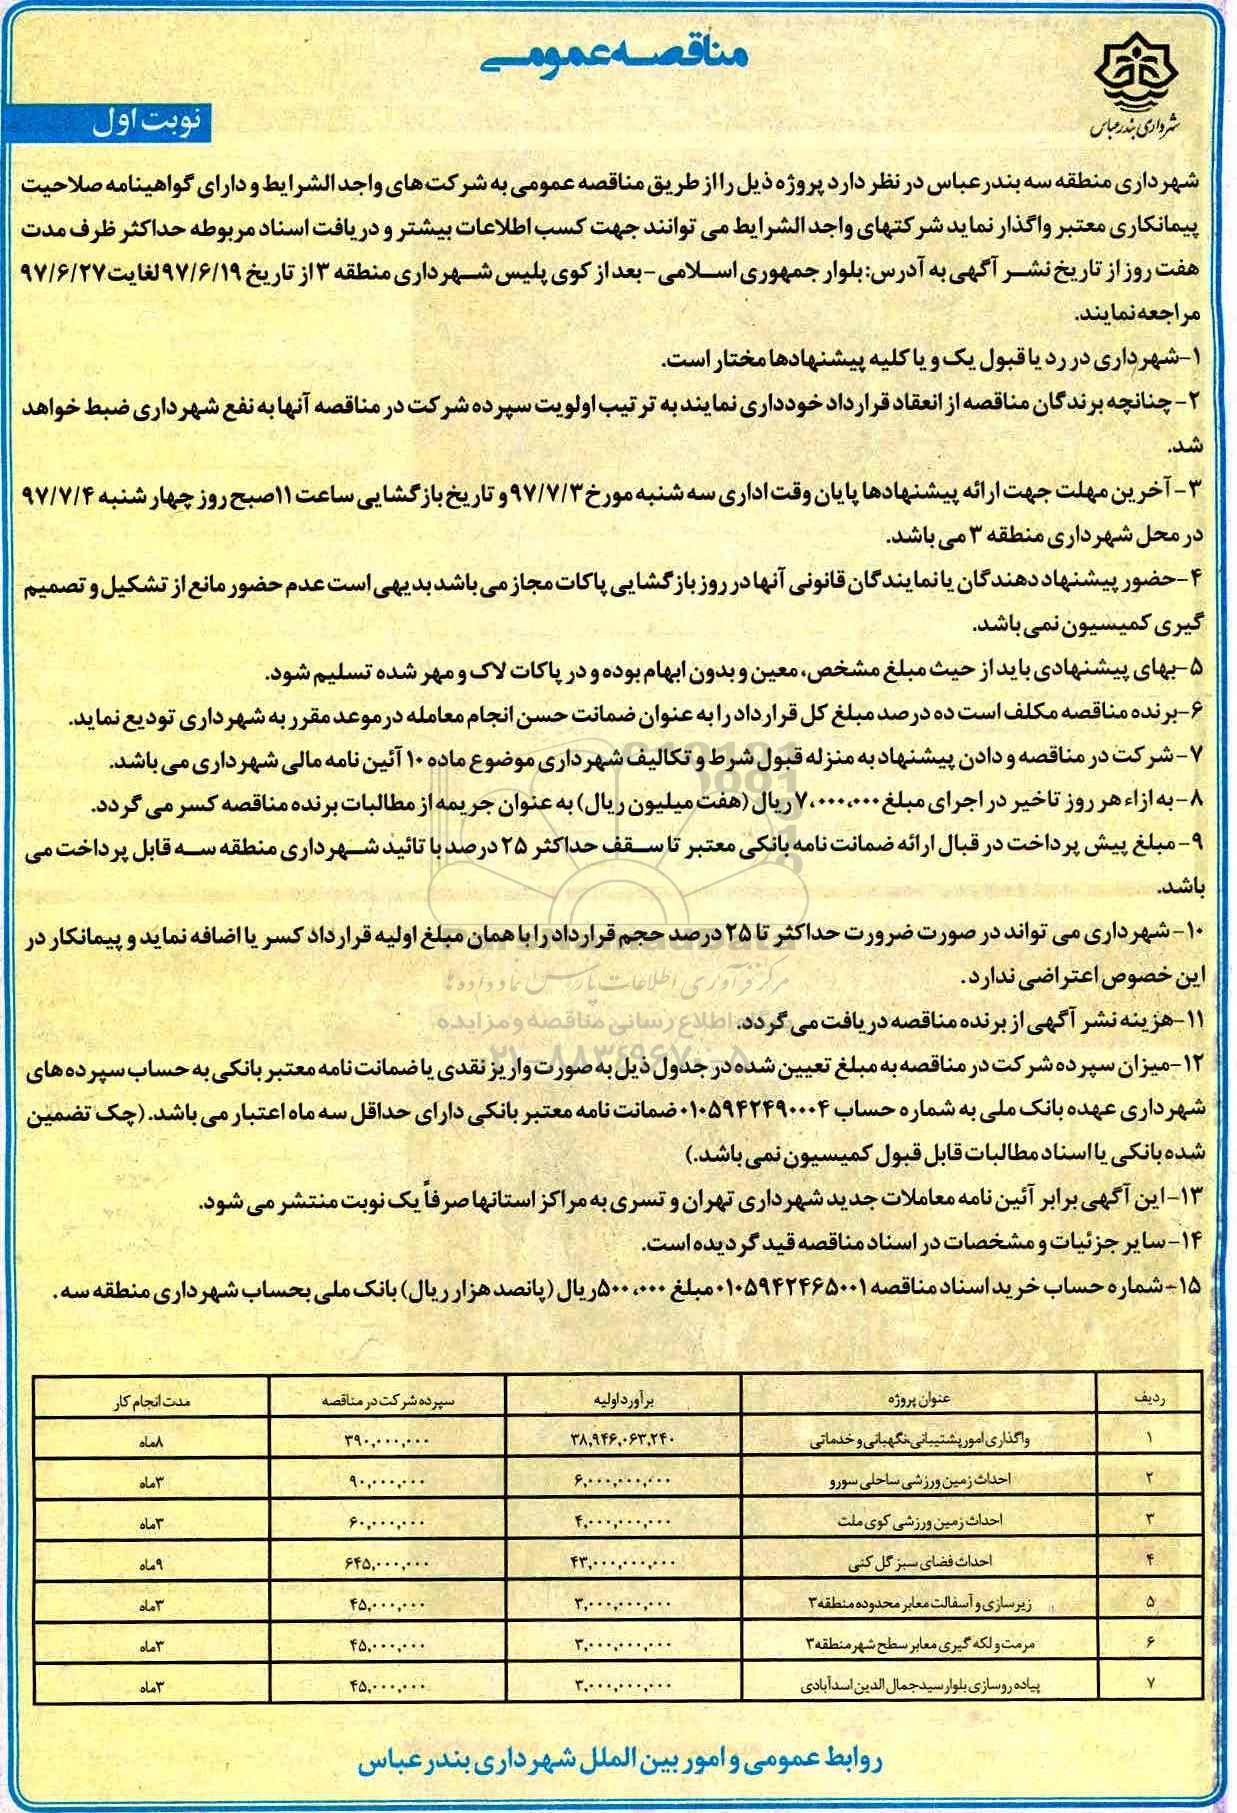 مناقصه عمومی
شهرداری بندرعباس
نوبت اول
شهرداری منطقه سه بندرعباس در نظر دارد پروژه ذیل را از طریق مناقصه عمومی به شرکت های واجد الشرایط و دارای گواهینامه صلاحیت
پیمانکاری معتبر واگذار نماید شرکتهای واجد الشرایط می توانند جهت کسب اطلاعات بیشتر و دریافت اسناد مربوطه حداکثر ظرف مدت
هفت روز از تاریخ نشر آگهی به آدرس: بلوار جمهوری اسلامی - بعد از کوی پلیس شهرداری منطقه ۳ از تاریخ ۹۷/۶/۱۹ لغایت ۹۷/۶/۲۷
مراجعه نمایند.
۱-شهرداری در رد یا قبول یک و یا کلیه پیشنهادها مختار است.
۲- چنانچه برندگان مناقصه از انعقاد قرارداد خودداری نمایند به ترتیب اولویت سپرده شرکت در مناقصه آنها به نفع شهرداری ضبط خواهد
شد.
۳- آخرین مهلت جهت ارائه پیشنهادها پایان وقت اداری سه شنبه مورخ ۹۷/۷/۳ و تاریخ بازگشایی ساعت ۱۱صبح روز چهارشنبه ۹۷/۷/۴
در محل شهرداری منطقه ۳ می باشد.
۴-حضور پیشنهاد دهندگان یا نمایندگان قانونی آنها در روز بازگشایی پاکات مجاز می باشد بدیهی است عدم حضور مانع از تشکیل و تصمیم
گیری کمیسیون نمی باشد.
۵-بهای پیشنهادی باید از حیث مبلغ مشخص، معین و بدون ابهام بوده و در پاکات لاک و مهر شده تسلیم شود.
۶-برنده مناقصه مکلف است ده درصد مبلغ کل قرارداد را به عنوان ضمانت حسن انجام معامله در موعد مقرر به شهرداری تودیع نماید.
۷- شرکت در مناقصه و دادن پیشنهاد به منزله قبول شرط و تکالیف شهرداری موضوع ماده ۱۰ آئین نامه مالی شهرداری می باشد.
۸- به ازاء هر روز تاخیر در اجرای مبلغ ۷،۰۰۰،۰۰۰ ریال (هفت میلیون ریال) به عنوان جریمه از مطالبات برنده مناقصه کسر می گردد.
۹- مبلغ پیش پرداخت در قبال ارائه ضمانت نامه بانکی معتبر تا سقف حداکثر ۲۵ درصد با تائید شهرداری منطقه سه قابل پرداخت می
باشد.
۱۰- شهرداری می تواند در صورت ضرورت حداکثر تا ۲۵ درصد حجم قرارداد را با همان مبلغ اولیه قرارداد کسر یا اضافه نماید و پیمانکار در
این خصوص اعتراضی ندارد.
مرکز فرآوری اطلاعات پارس نماد داده ها
۱۱-هزینه نشر آگهی از برنده مناقصه دریافت می گردد.
اطلاع رسانی مناقصه و مزایده
۰۲۱-۸۸۳۴۹۶۷۰-۵
۱۲-میزان سپرده شرکت در مناقصه به مبلغ تعیین شده در جدول ذیل به صورت واریز نقدی یا ضمانت نامه معتبر بانکی به حساب سپرده های
شهرداری عهده بانک ملی به شماره حساب ۰۱۰۵۹۴۲۴۹۰۰۰۴ ضمانت نامه معتبر بانکی دارای حداقل سه ماه اعتبار می باشد. (چک تضمین
شده بانکی یا اسناد مطالبات قابل قبول کمیسیون نمی باشد.)
۱۳- این آگهی برابر آئین نامه معاملات جدید شهرداری تهران و تسری به مراکز استانها صرفاً یک نوبت منتشر می شود.
۱۴- سایر جزئیات و مشخصات در اسناد مناقصه قید گردیده است.
۱۵- شماره حساب خرید اسناد مناقصه ۰۱۰۵۹۴۲۴۶۵۰۰۱ مبلغ ۵۰۰،۰۰۰ ریال (پانصد هزار ریال) بانک ملی بحساب شهرداری منطقه سه .
ردیف عنوان پروژه برآورد اولیه سپرده شرکت در مناقصه مدت انجام کار
۱ واگذاری امور پشتیبانی،نگهبانی و خدماتی ۳۸,۹۴۶,۰۶۳,۲۴۰ ۳۹۰,۰۰۰,۰۰۰ ۸ماه
۲ احداث زمین ورزشی ساحلی سورو ۶,۰۰۰,۰۰۰,۰۰۰ ۹۰,۰۰۰,۰۰۰ ۳ماه
۳ احداث زمین ورزشی کوی ملت ۴,۰۰۰,۰۰۰,۰۰۰ ۶۰,۰۰۰,۰۰۰ ۳ماه
۴ احداث فضای سبز گل کنی ۴۳,۰۰۰,۰۰۰,۰۰۰ ۶۴۵,۰۰۰,۰۰۰ ۹ماه
۵ زیرسازی و آسفالت معابر محدوده منطقه ۳ ۳,۰۰۰,۰۰۰,۰۰۰ ۴۵,۰۰۰,۰۰۰ ۳ماه
۶ مرمت و لکه گیری معابر سطح شهر منطقه ۳ ۳,۰۰۰,۰۰۰,۰۰۰ ۴۵,۰۰۰,۰۰۰ ۳ماه
۷ پیاده روسازی بلوار سیدجمال الدین اسدآبادی ۳,۰۰۰,۰۰۰,۰۰۰ ۴۵,۰۰۰,۰۰۰ ۳ماه
روابط عمومی و امور بین الملل شهرداری بندرعباس